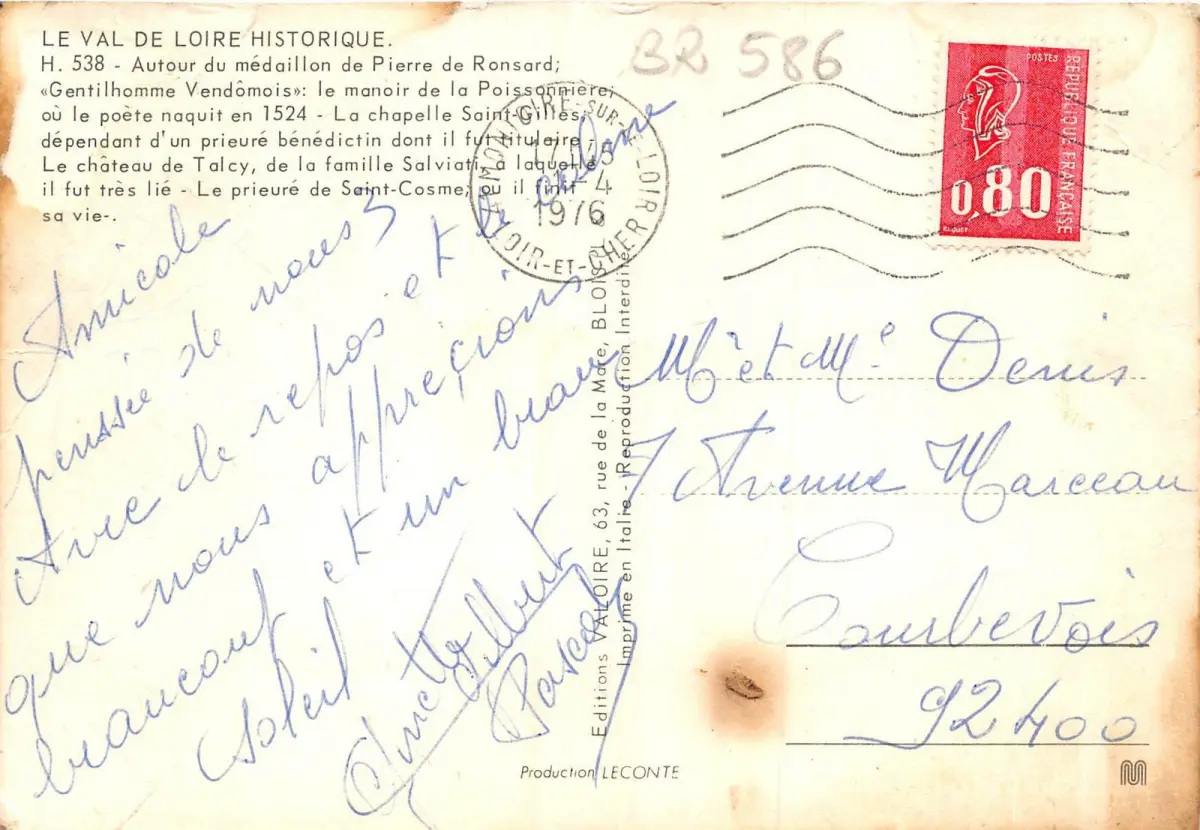 LE VAL DE LOIRE HISTORIQUE.
H. 538 - Autour du médaillon de Pierre de Ronsard;
«Gentilhomme Vendômois»: le manoir de la Poissonnière;
où le poète naquit en 1524 - La chapelle Saint-Gilles,
dépendant d'un prieuré bénédictin dont il fut titulaire;
Le château de Talcy, de la famille Salviati, à laquelle
il fut très lié - Le prieuré de Saint-Cosme, où il finit
sa vie-.
BR 586
POSTES
REPUBLIQUE FRANÇAISE
0,80
BEQUET
SUR-LE-LOIR
17-45
-4
1976
LOIR-ET-CHER
Amicale
pensée de nous 3
Avec le repos et le calme
que nous appreçions
beaucoup et un beau
Soleil
Ginette Gilbert
Pascal
Editions VALOIRE, 63, rue de la Mare, BLOIS
Imprimé en Italie - Reproduction Interdite
Mr et Me Denis
7 Avenue Marceau
Courbevois
92400
Production LECONTE